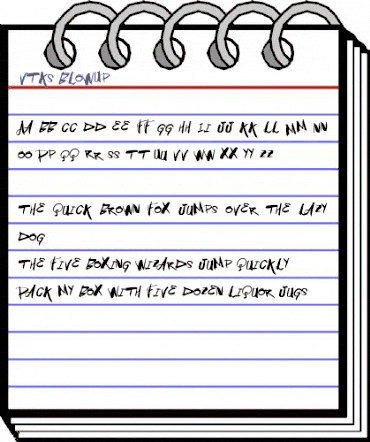 VTKS BLOWUP
AA BB CC DD EE FF GG HH II JJ KK LL MM NN
OO PP QQ RR SS TT UU VV WW XX YY ZZ
THE QUICK BROWN FOX JUMPS OVER THE LAZY
DOG
THE FIVE BOXING WIZARDS JUMP QUICKLY
PACK MY BOX WITH FIVE DOZEN LIQUOR JUGS